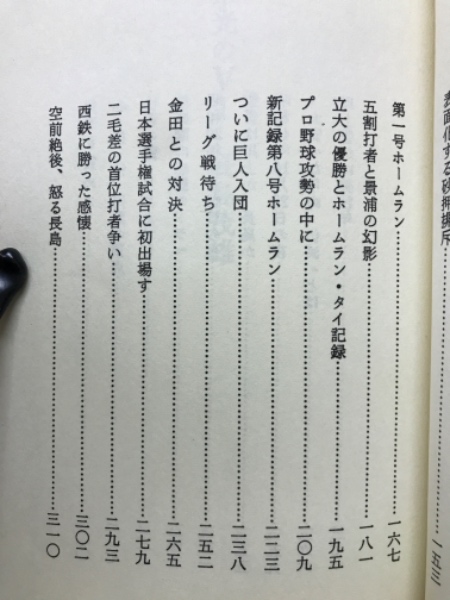 第一号ホームラン……一六七
五割打者と景浦の幻影……一八一
立大の優勝とホームラン・タイ記録……一九五
プロ野球攻勢の中に……二〇九
新記録第八号ホームラン……二二三
ついに巨人入団……二三八
リーグ戦待ち……二五二
金田との対決……二六五
日本選手権試合に初出場す……二七九
二毛差の首位打者争い……二九三
西鉄に勝った感懐……三〇二
空前絶後、怒る長島……三一〇